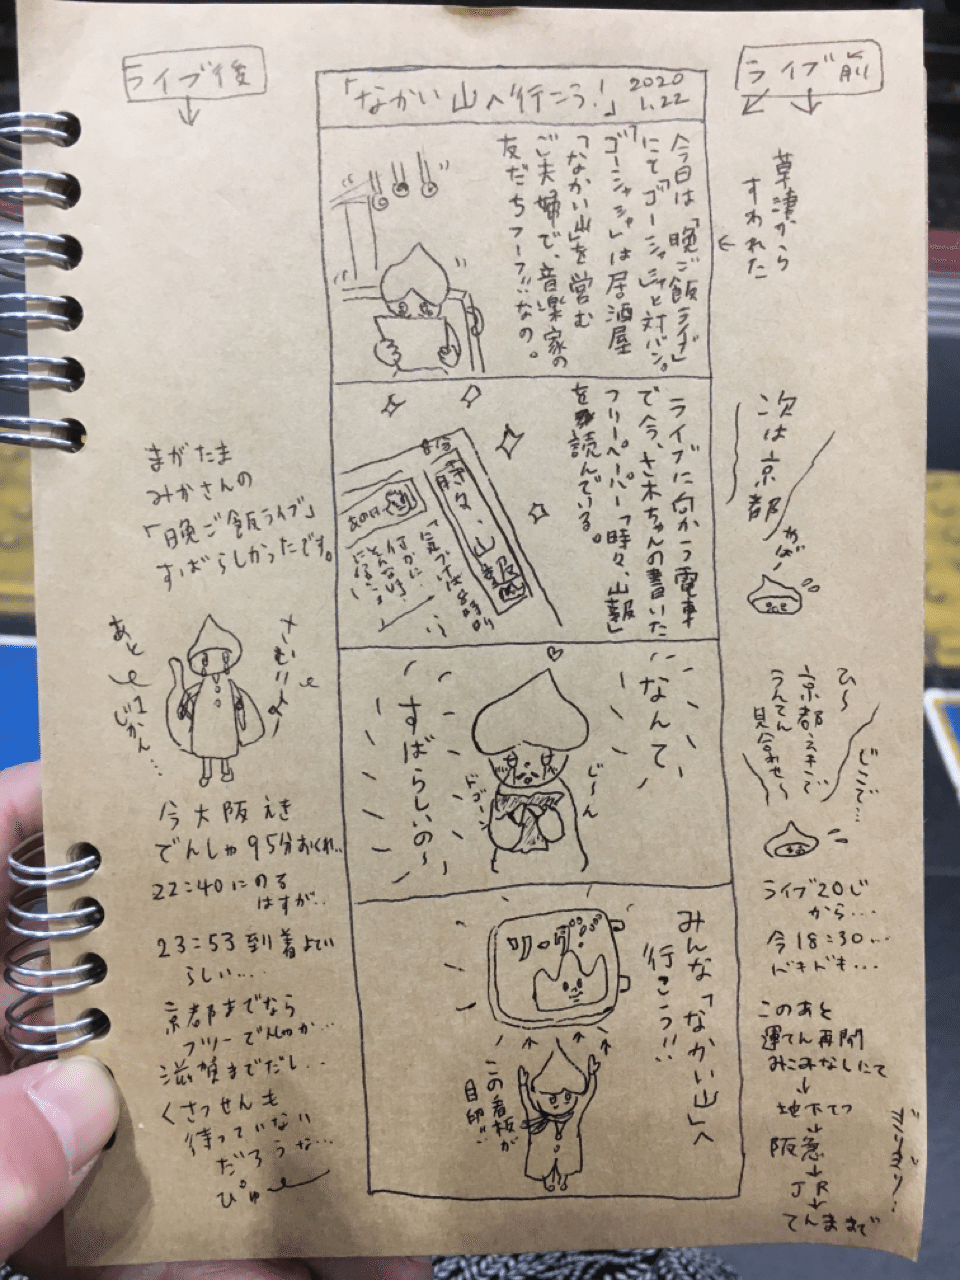 ライブ前
草津から
すわれた
次は京都
わばー
ひ〜
じこで…
京都えきで
うんてん
見合わせ〜
ライブ20じ
から…
今18:30…
ドキドキ…
このあと
運てん再開
みこみなしにて
地下てつ
阪急
JR
てんままで
ギリギリ…
「なかい山へ行こう!」
2020
1.22
今日は「晩ご飯ライブ」
にて「ゴーシャシャ」と対バン。
「ゴーシャシャ」は居酒屋
「なかい山」を営む
ご夫婦で、音楽家の
友だちフーフ!!なの。
ライブに向かう電車
で今、さ木ちゃんの書いた
フリーペーパー「時々、山報」
を読んでいる。
時々、山報
あの日
「気づけば8時的
何かに!
どんな時?
なんて
すばらしいの〜
じーん
ドゴーン
みんな「なかい山」へ
行こう!!
この看板が
目印!!
ライブ後
まがたま
みかさんの
「晩ご飯ライブ」
すばらしかったです。
さむいよー
あと
1
じかん…
今大阪えき
でんしゃ95分おくれ…
22:40にのる
はずが…
23:53到着よてい
らしい…
京都までなら
フツーでんしゃか…
滋賀までだし…
くさつせんも
待っていない
だろうな…
ぴゅー